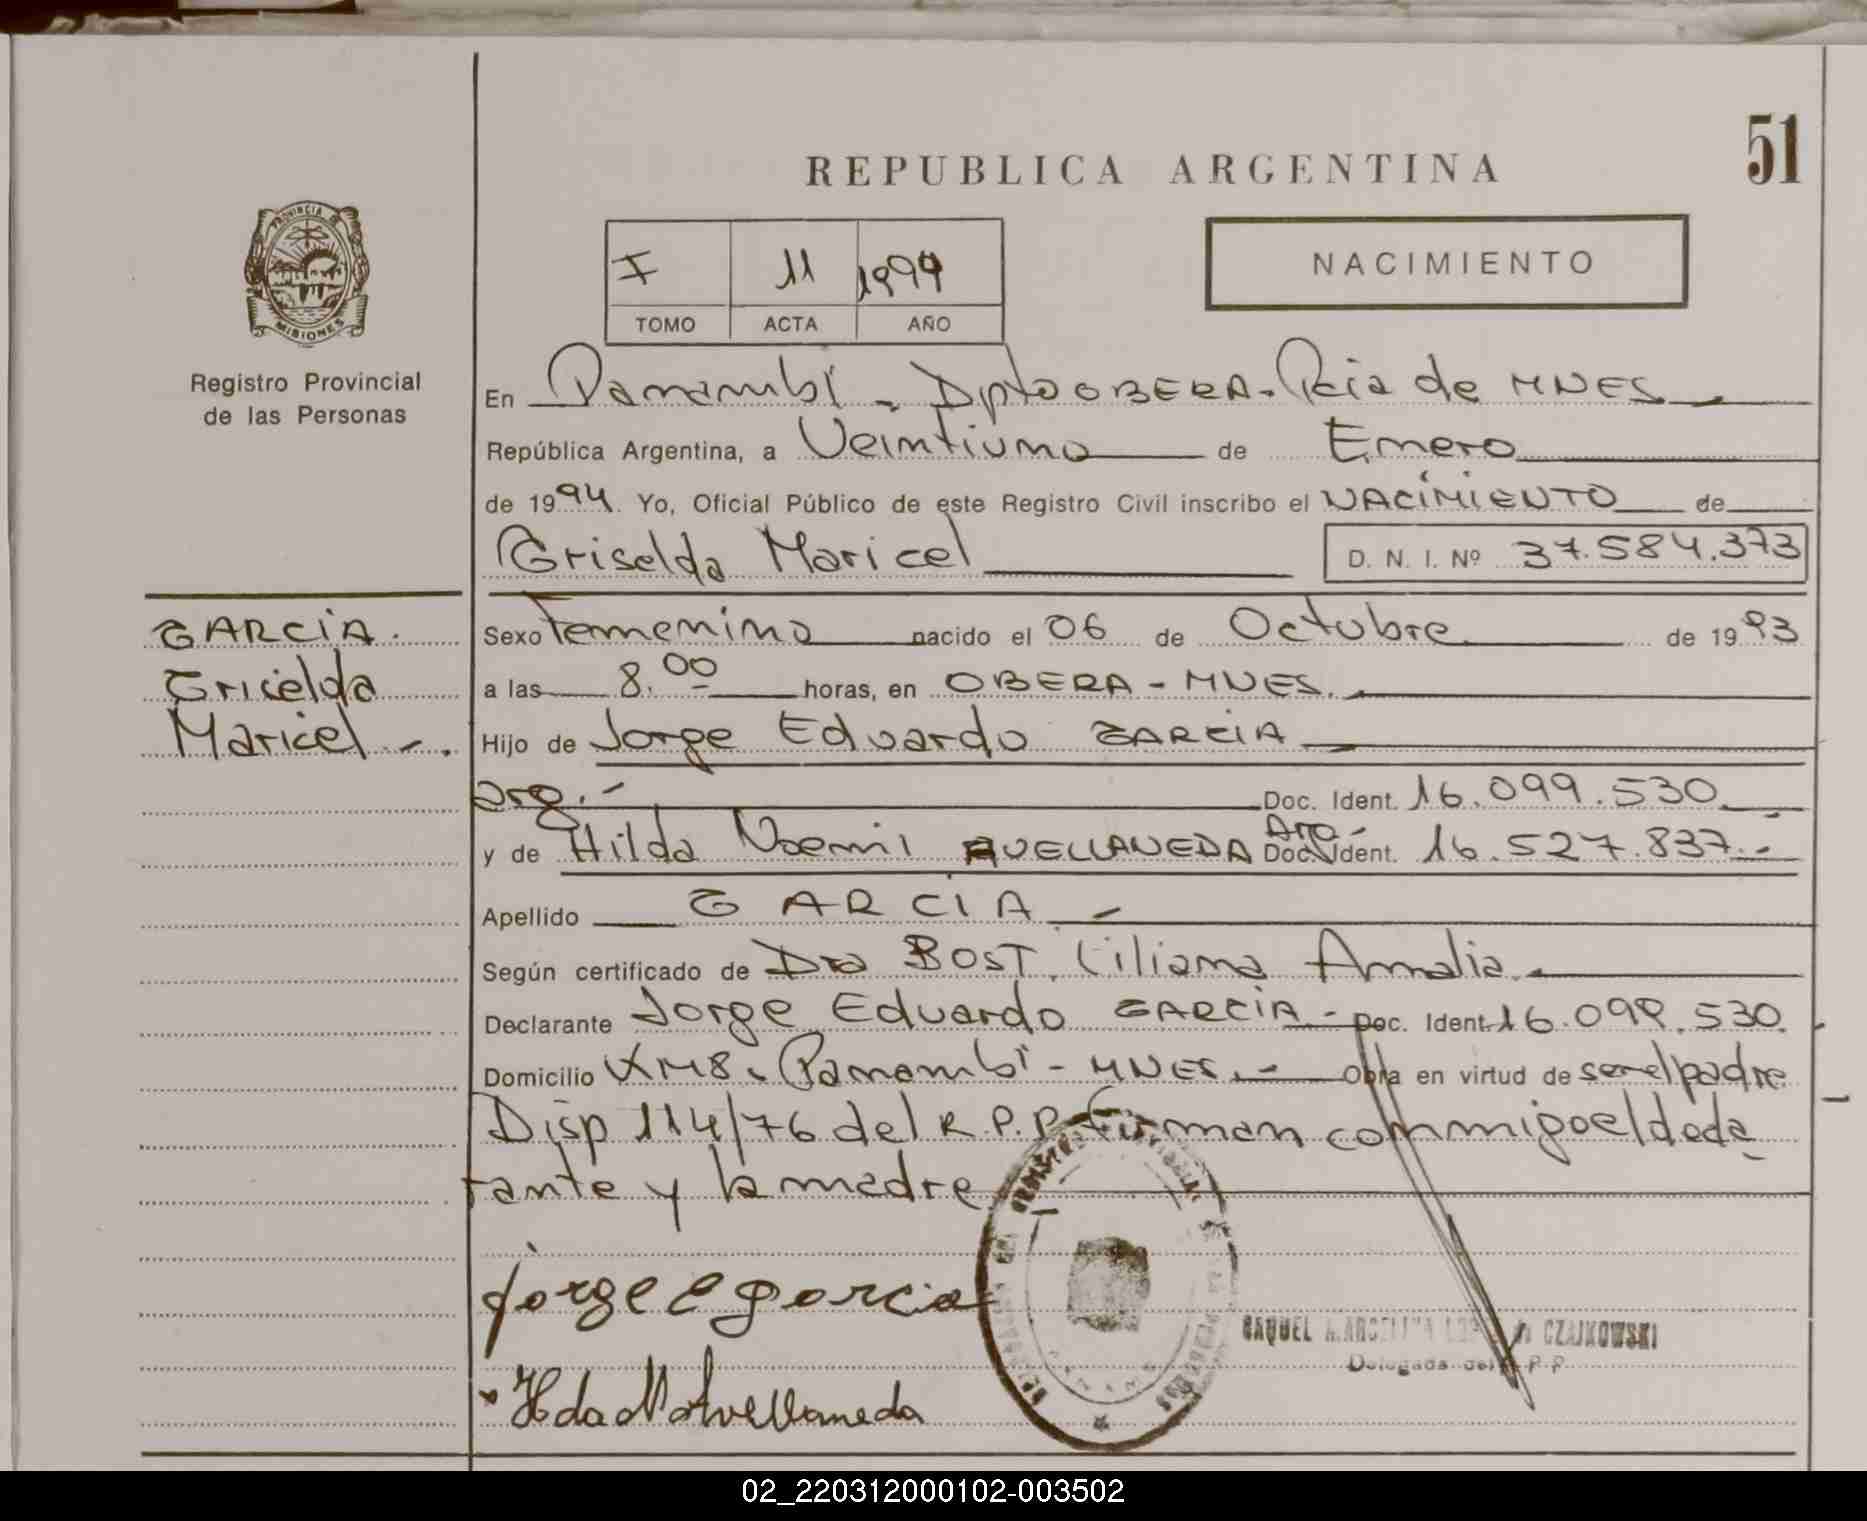 51
REPUBLICA ARGENTINA
PROVINCIA DE
MISIONES
Registro Provincial
de las Personas
I 11 1994
TOMO ACTA AÑO
NACIMIENTO
En Panambí - Dpto OBERA - Pcia de MNES
República Argentina, a Veintiuno de Enero
de 1994. Yo, Oficial Público de este Registro Civil inscribo el NACIMIENTO de
Griselda Maricel D. N. I. Nº 37.584.373
GARCIA.
Griselda
Maricel -.
Sexo Femenino nacido el 06 de Octubre de 1993
a las 8.00 horas, en OBERA - MNES.
Hijo de Jorge Eduardo GARCIA
arg.- Doc. Ident. 16.099.530
y de Hilda Noemi AVELLANEDA Arg- Doc. Ident. 16.527.837.-
Apellido GARCIA -
Según certificado de Dra BOST, Liliana Amalia.
Declarante Jorge Eduardo GARCIA - Doc. Ident. 16.099.530.
Domicilio KM 8. Panambí - MNES.- Obra en virtud de ser el padre
Disp 114/76 del R.P.P. Firman conmigo el decla
rante y la madre
Jorge E garcia
CZAJKOWSKI
Delegada del R.P.P.
Avellaneda
02_220312000102-003502